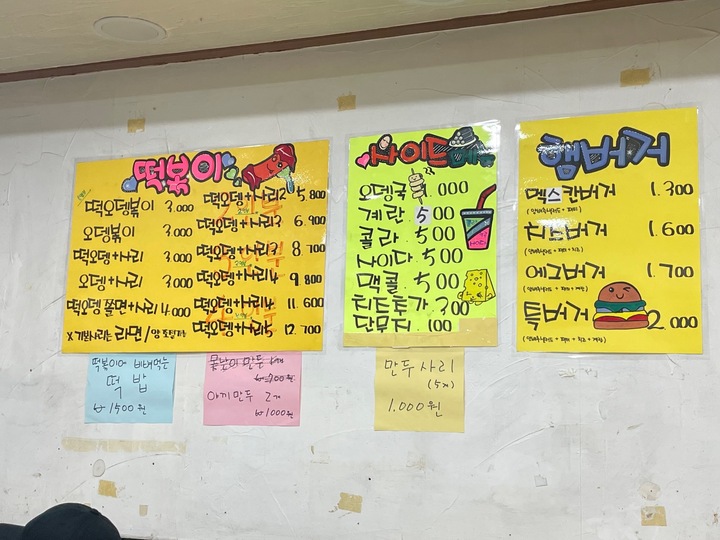 떡볶이
떡오뎅볶이 3.000
오뎅볶이 3.000
떡+사리 3.000
오뎅+사리 3.000
떡오뎅쫄면+사리 4.000
X 기본사리는 라면/
떡오뎅+사리2 5.800
떡오뎅+사리3 6.900
떡오뎅+사리3 8.700
떡오뎅+사리4 9.800
떡오뎅+사리4 11.600
떡오뎅+사리5 12.700
떡볶이에 비벼먹는
떡밥
₩1500원
못난이만두
아끼만두 2개
₩1000원
사이드메뉴
오뎅국 1.000
계란 500
콜라 500
사이다 500
맥콜 500
치즈추가 300
단무지 100
만두사리
(5개)
1.000원
햄버거
멕스칸버거 1.300
치즈버거 1.600
에그버거 1.700
특버거 2.000